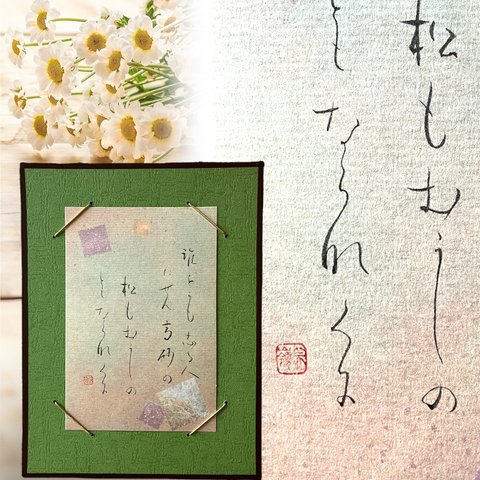 誰をかも志る人
にせん高砂の
松もむかしの
ともならなくに
松もむかしの
ともならなくに